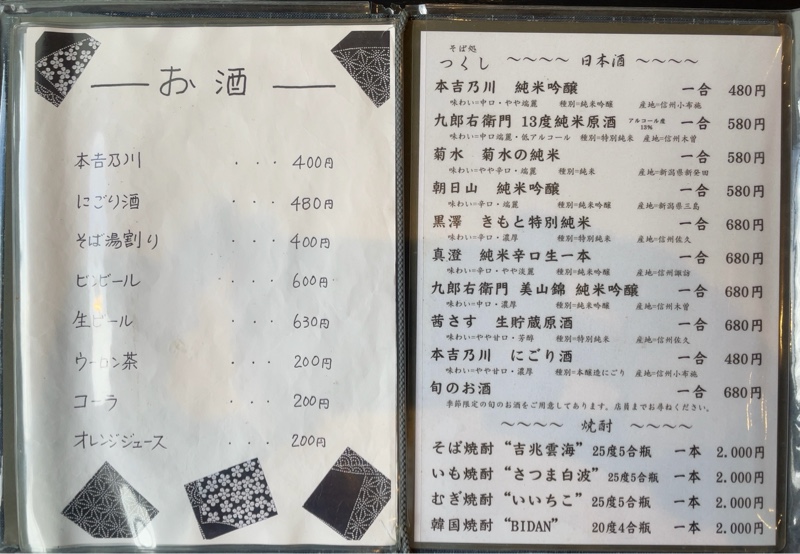 お酒
本吉乃川 ・・・ 400円
にごり酒 ・・・ 480円
そば湯割り ・・・ 400円
ビンビール ・・・ 600円
生ビール ・・・ 630円
ウーロン茶 ・・・ 200円
コーラ ・・・ 200円
オレンジジュース ・・・ 200円
そば処
つくし ～～～～ 日本酒 ～～～～
本吉乃川 純米吟醸 一合 480円
味わい=中口・やや端麗 種別=純米吟醸 産地=信州小布施
九郎右衛門 13度純米原酒 アルコール度 13% 一合 580円
味わい=中口端麗・低アルコール 種別=特別純米 産地=信州木曽
菊水 菊水の純米 一合 580円
味わい=やや辛口・端麗 種別=純米 産地=新潟県新発田
朝日山 純米吟醸 一合 580円
味わい=辛口・端麗 種別=純米吟醸 産地=新潟県三島
黒澤 きもと特別純米 一合 680円
味わい=辛口・濃厚 種別=特別純米 産地=信州佐久
真澄 純米辛口生一本 一合 680円
味わい=辛口・やや淡麗 種別=純米吟醸 産地=信州諏訪
九郎右衛門 美山錦 純米吟醸 一合 680円
味わい=中口・濃厚 種別=純米吟醸 産地=信州木曽
茜さす 生貯蔵原酒 一合 680円
味わい=やや甘口・芳醇 種別=特別純米 産地=信州佐久
本吉乃川 にごり酒 一合 480円
味わい=やや甘口・濃厚 種別=本醸造にごり 産地=信州小布施
旬のお酒 一合 680円
季節限定の旬のお酒をご用意してあります。店員までお尋ねください。
～～～～ 焼酎 ～～～～
そば焼酎“吉兆雲海” 25度5合瓶 一本 2.000円
いも焼酎“さつま白波” 25度5合瓶 一本 2.000円
むぎ焼酎“いいちこ” 25度5合瓶 一本 2.000円
韓国焼酎“BIDAN” 20度4合瓶 一本 2.000円